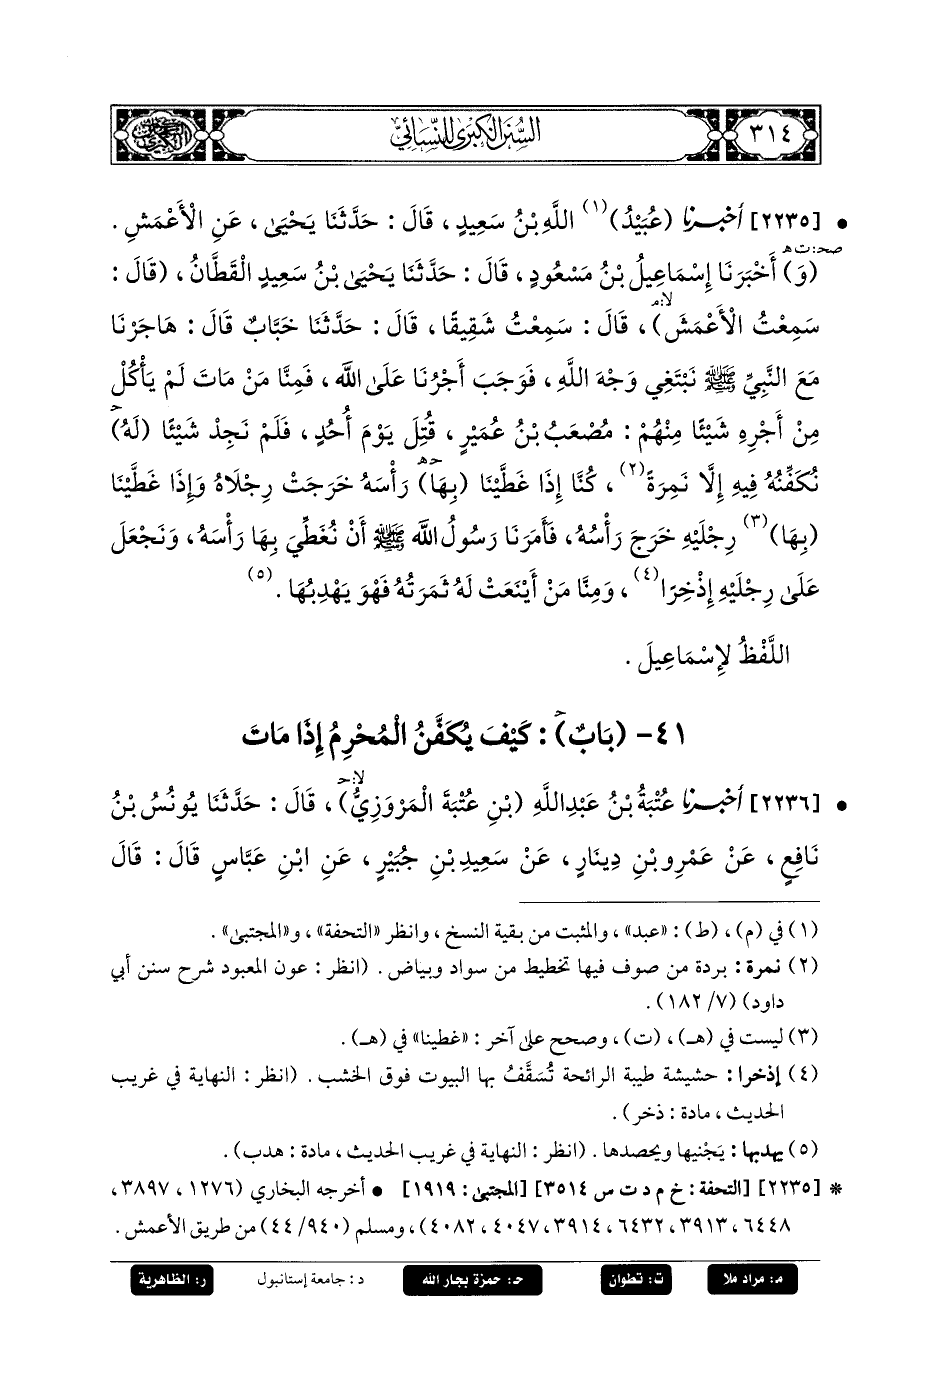 ٣١٤
السنن الكبرى للنسائي
• [٢٢٣٥] أخبرنا (عُبَيْدُ)(١) اللَّهِ بْنُ سَعِيدٍ، قَالَ: حَدَّثَنَا يَحْيَى، عَنِ الْأَعْمَشِ.
صح: ت هـ
(وَ) أَخْبَرَنَا إِسْمَاعِيلُ بْنُ مَسْعُودٍ، قَالَ: حَدَّثَنَا يَحْيَى بْنُ سَعِيدٍ الْقَطَّانُ، (قَالَ:
لا: م
سَمِعْتُ الْأَعْمَشَ)، قَالَ: سَمِعْتُ شَقِيقًا، قَالَ: حَدَّثَنَا خَبَّابٌ قَالَ: هَاجَرْنَا
مَعَ النَّبِيِّ ﷺ نَبْتَغِي وَجْهَ اللَّهِ، فَوَجَبَ أَجْرُنَا عَلَى اللَّه، فَمِنَّا مَنْ مَاتَ لَمْ يَأْكُلْ
مِنْ أَجْرِهِ شَيْئًا مِنْهُمْ: مُصْعَبُ بْنُ عُمَيْرٍ، قُتِلَ يَوْمَ أُحُدٍ، فَلَمْ نَجِدْ شَيْئًا (لَهُ)
نُكَفِّنُهُ فِيهِ إِلَّا نَمِرَةً(٢)، كُنَّا إِذَا غَطَّيْنَا (بِهَا) رَأْسَهُ خَرَجَتْ رِجْلَاهُ وَإِذَا غَطَّيْنَا
(بِهَا)(٣) رِجْلَيْهِ خَرَجَ رَأْسُهُ، فَأَمَرَنَا رَسُولُ اللَّه ﷺ أَنْ نُغَطِّيَ بِهَا رَأْسَهُ، وَنَجْعَلَ
عَلَى رِجْلَيْهِ إِذْخِرًا(٤)، وَمِنَّا مَنْ أَيْنَعَتْ لَهُ ثَمَرَتُهُ فَهْوَ يَهْدِبُهَا(٥).
اللَّفْظُ لِإِسْمَاعِيلَ.
٤١- (بَابٌ): كَيْفَ يُكَفَّنُ الْمُحْرِمُ إِذَا مَاتَ
لا: حـ
• [٢٢٣٦] أخبرنا عُتْبَةُ بْنُ عَبْدِاللَّهِ (بْنِ عُتْبَةَ الْمَرْوَزِيُّ)، قَالَ: حَدَّثَنَا يُونُسُ بْنُ
نَافِعٍ، عَنْ عَمْرِو بْنِ دِينَارٍ، عَنْ سَعِيدِ بْنِ جُبَيْرٍ، عَنِ ابْنِ عَبَّاسٍ قَالَ: قَالَ
(١) في (م)، (ط): «عبد»، والمثبت من بقية النسخ، وانظر «التحفة»، و«المجتبى».
(٢) نمرة: بردة من صوف فيها تخطيط من سواد وبياض. (انظر: عون المعبود شرح سنن أبي
داود) (٧/ ١٨٢).
(٣) ليست في (هـ)، (ت)، وصحح على آخر: «غطينا» في (هـ).
(٤) إذخرا: حشيشة طيبة الرائحة تُسَقَّفُ بها البيوت فوق الخشب. (انظر: النهاية في غريب
الحديث، مادة: ذخر).
(٥) يهدبها: يَجْنيها ويحصدها. (انظر: النهاية في غريب الحديث، مادة: هدب).
* [٢٢٣٥] [التحفة: خ م د ت س ٣٥١٤] [المجتبى: ١٩١٩] • أخرجه البخاري (١٢٧٦، ٣٨٩٧،
٣٩١٣، ٦٤٤٨، ٣٩١٤، ٦٤٣٢، ٤٠٤٧، ٤٠٨٢)، ومسلم (٤٤/٩٤٠) من طريق الأعمش.
م: مراد ملا ت: تطوان حـ: حمزة بجار الله د: جامعة إستانبول ر: الظاهرية